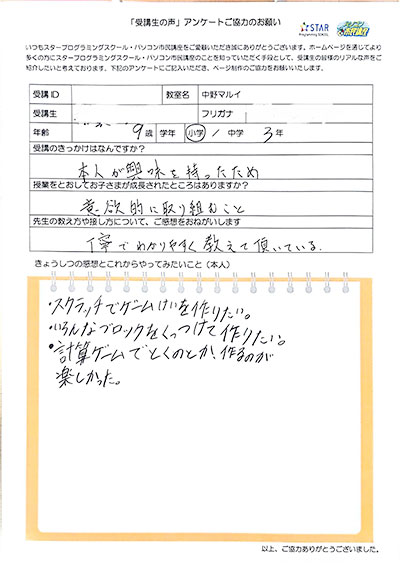 「受講生の声」アンケートご協力のお願い
STAR
Programming SCHOOL
いつもスタープログラミングスクール・パソコン市民講座をご愛顧いただき誠にありがとうございます。ホームページを通じてより
多くの方にスタープログラミングスクール・パソコン市民講座のことを知っていただく手段として、受講生の皆様のリアルな声をご
紹介したいと考えております。下記のアンケートにご記入いただき、ページ制作のご協力をお願いいたします。
受講ID 教室名 中野マルイ
受講生 フリガナ
年齢 9歳 学年 小学 / 中学 3年
受講のきっかけはなんですか？
本人が興味を持ったため
授業をとおしてお子さまが成長されたところはありますか？
意欲的に取り組むこと
先生の教え方や接し方について、ご感想をおねがいします
丁寧でわかりやすく教えて頂いている.
きょうしつの感想とこれからやってみたいこと（本人）
・スクラッチでゲームけいを作りたい。
・いろんなブロックをくっつけて作りたい。
・計算ゲームでとくのとか、作るのが
楽しかった。
以上、ご協力ありがとうございました。